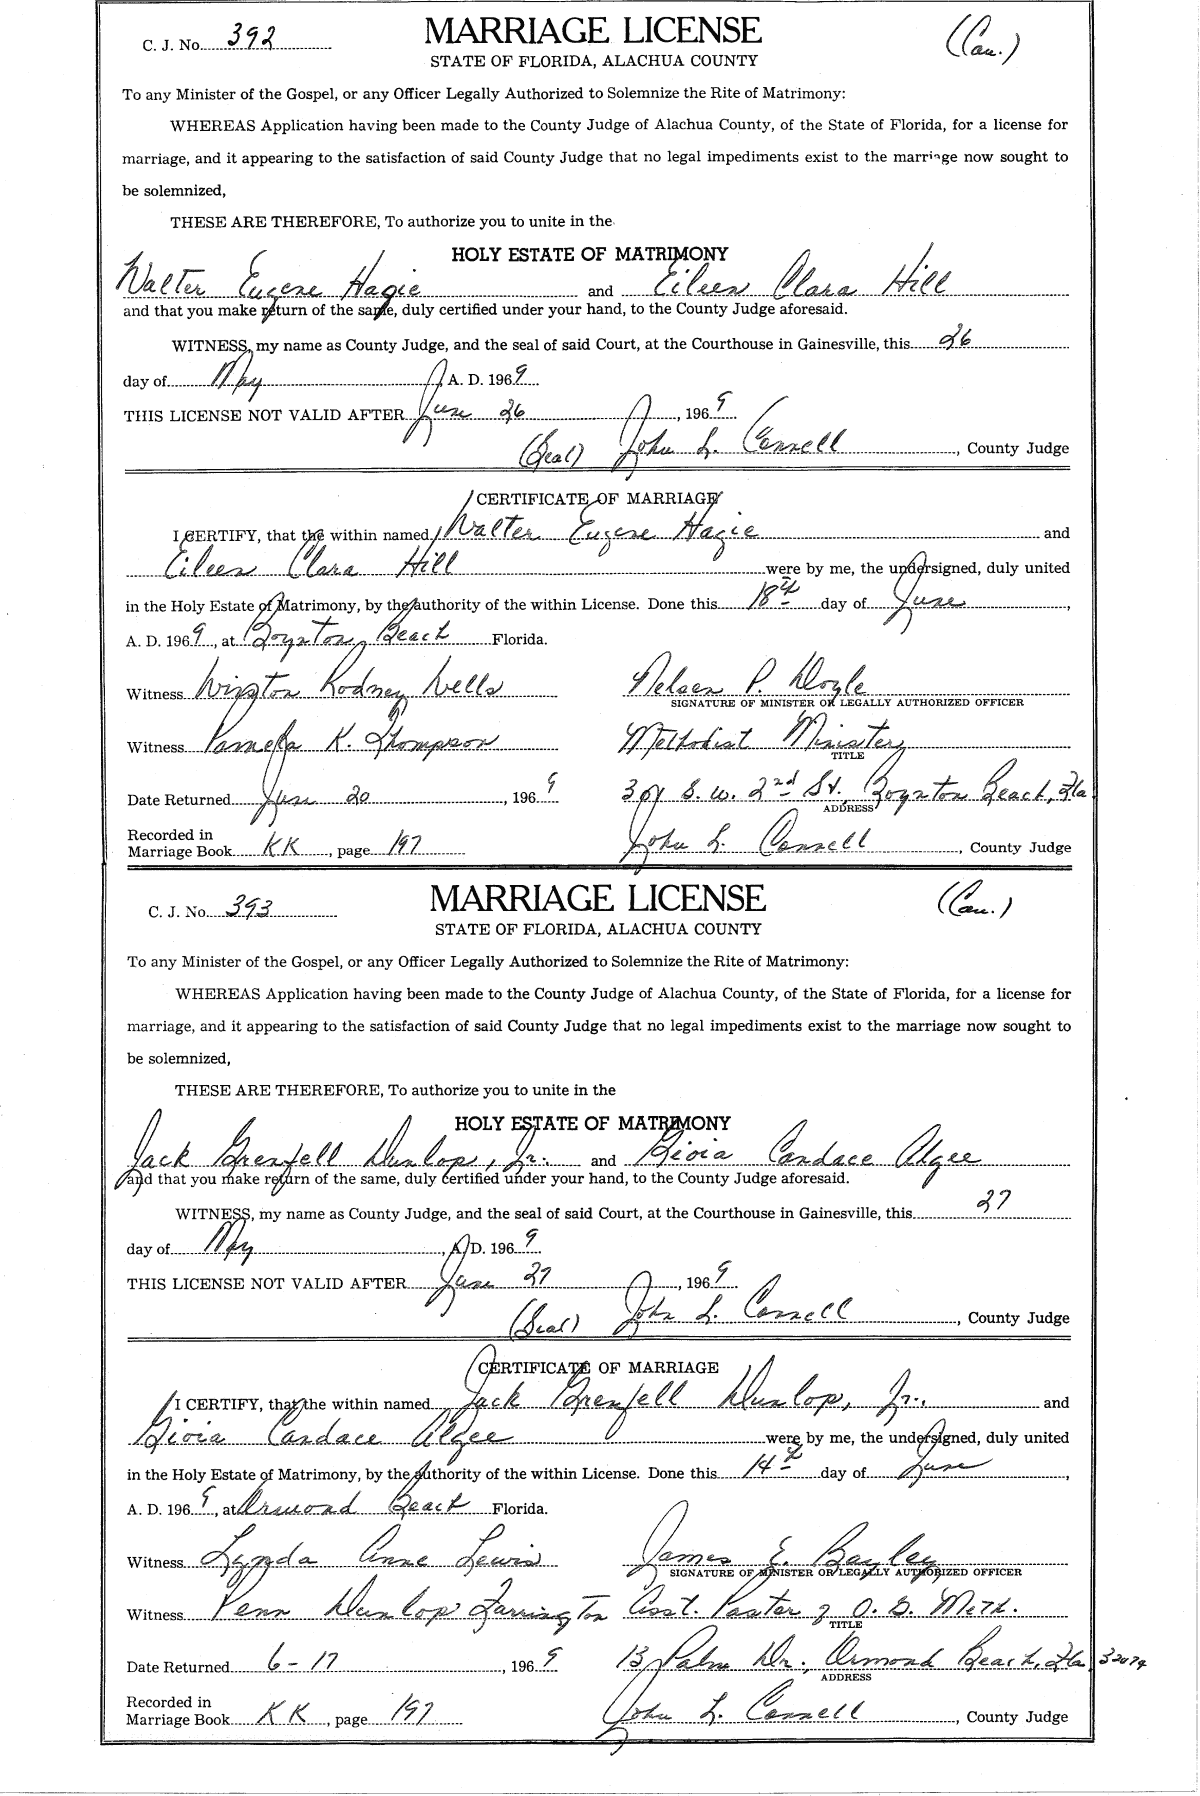 C. J. No. 392 MARRIAGE LICENSE (Cau.)
STATE OF FLORIDA, ALACHUA COUNTY
To any Minister of the Gospel, or any Officer Legally Authorized to Solemnize the Rite of Matrimony:
WHEREAS Application having been made to the County Judge of Alachua County, of the State of Florida, for a license for
marriage, and it appearing to the satisfaction of said County Judge that no legal impediments exist to the marriage now sought to
be solemnized,
THESE ARE THEREFORE, To authorize you to unite in the
HOLY ESTATE OF MATRIMONY
Walter Eugene Hagie and Eileen Clara Hill
and that you make return of the same, duly certified under your hand, to the County Judge aforesaid.
WITNESS, my name as County Judge, and the seal of said Court, at the Courthouse in Gainesville, this 26
day of May, A. D. 1969
THIS LICENSE NOT VALID AFTER June 26, 1969
(Seal) John L. Connell, County Judge
CERTIFICATE OF MARRIAGE
I CERTIFY, that the within named Walter Eugene Hagie and
Eileen Clara Hill were by me, the undersigned, duly united
in the Holy Estate of Matrimony, by the authority of the within License. Done this 18th day of June,
A. D. 1969, at Boynton Beach Florida.
Witness Winston Rodney Wells Nelson P. Doyle
SIGNATURE OF MINISTER OR LEGALLY AUTHORIZED OFFICER
Witness Pamela K. Thompson Methodist Minister
TITLE
Date Returned June 20, 1969 301 S. W. 2nd St., Boynton Beach, Fla.
ADDRESS
Recorded in
Marriage Book KK, page 197 John L. Connell, County Judge
C. J. No. 393 MARRIAGE LICENSE (Cau.)
STATE OF FLORIDA, ALACHUA COUNTY
To any Minister of the Gospel, or any Officer Legally Authorized to Solemnize the Rite of Matrimony:
WHEREAS Application having been made to the County Judge of Alachua County, of the State of Florida, for a license for
marriage, and it appearing to the satisfaction of said County Judge that no legal impediments exist to the marriage now sought to
be solemnized,
THESE ARE THEREFORE, To authorize you to unite in the
HOLY ESTATE OF MATRIMONY
Jack Grenfell Dunlop, Jr. and Gioia Candace Algee
and that you make return of the same, duly certified under your hand, to the County Judge aforesaid.
WITNESS, my name as County Judge, and the seal of said Court, at the Courthouse in Gainesville, this 27
day of May, A. D. 1969
THIS LICENSE NOT VALID AFTER June 27, 1969
(Seal) John L. Connell, County Judge
CERTIFICATE OF MARRIAGE
I CERTIFY, that the within named Jack Grenfell Dunlop, Jr., and
Gioia Candace Algee were by me, the undersigned, duly united
in the Holy Estate of Matrimony, by the authority of the within License. Done this 14th day of June,
A. D. 1969, at Ormond Beach Florida.
Witness Lynda Anne Lewis James E. Bayley
SIGNATURE OF MINISTER OR LEGALLY AUTHORIZED OFFICER
Witness Penn Dunlop Farrington Asst. Pastor of O. B. Meth.
TITLE
Date Returned 6-17, 1969 13 Palm Dr., Ormond Beach, Fla. 32074
ADDRESS
Recorded in
Marriage Book KK, page 197 John L. Connell, County Judge